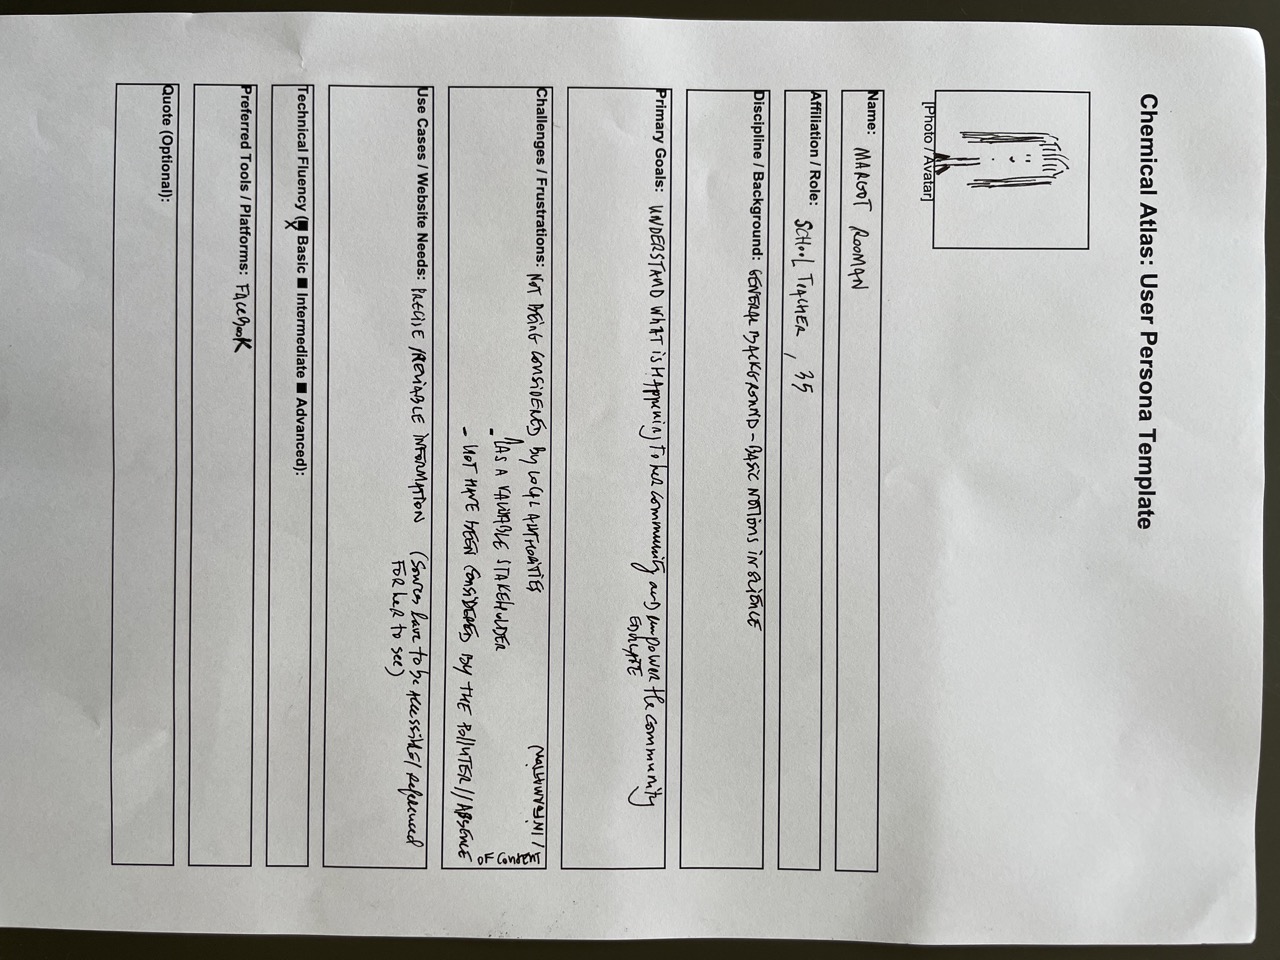 Chemical Atlas: User Persona Template
[Photo / Avatar]
Name: MARGOT ROOMAN
Affiliation / Role: SCHOOL TEACHER, 35
Discipline / Background: GENERAL BACKGROUND - BASIC NOTIONS IN SCIENCE
Primary Goals: UNDERSTAND WHAT is HAppening to her community and empower the community
EDUCATE
Challenges / Frustrations: NOT BEING CONSIDERED By LOCAL AUTHORITIES
AS A VALUABLE STAKEHOLDER
- NOT HAVE BEEN CONSIDERED BY THE POLLUTER // ABSENCE
OF CONSENT
/ INFORMATION
Use Cases / Website Needs: PRECISE / RELIABLE INFORMATION (Sources have to be ACCESSIBLE / referenced
FOR her to see)
Technical Fluency (■ Basic ■ Intermediate ■ Advanced):
X
Preferred Tools / Platforms: FACEBOOK
Quote (Optional):